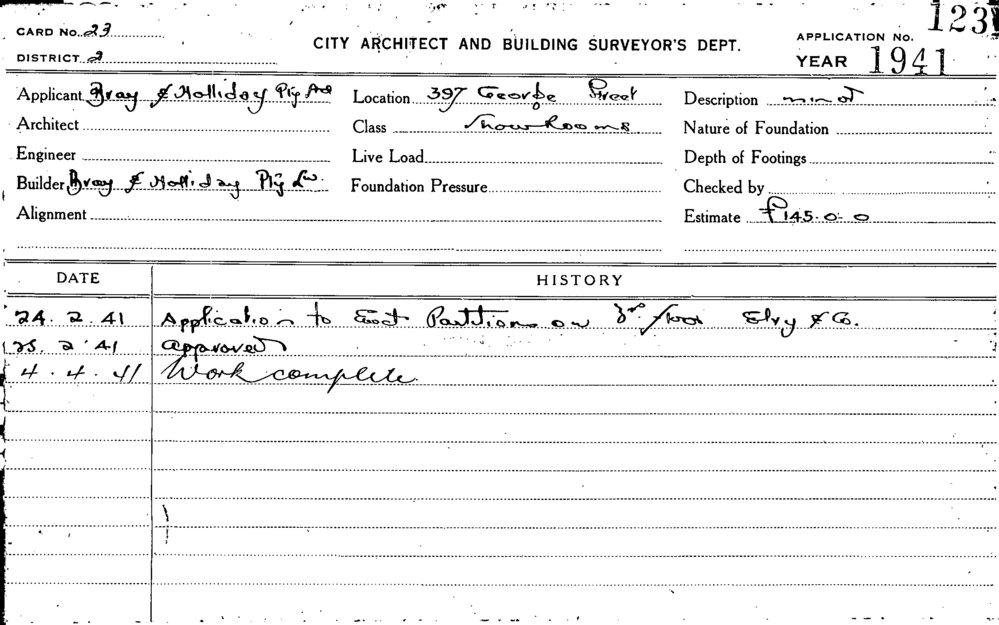 CARD No. 23
CITY ARCHITECT AND BUILDING SURVEYOR'S DEPT.
APPLICATION No. 123
DISTRICT 2
YEAR 1941
Applicant Bray & Holliday Pty Ltd
Location 397 George Street
Description minor
Architect
Class Show Rooms
Nature of Foundation
Engineer
Live Load
Depth of Footings
Builder Bray & Holliday Pty Ltd.
Foundation Pressure
Checked by
Alignment
Estimate £145.0.0
DATE HISTORY
24.2.41 Application to Erect Partitions on 3rd floor Elvy & Co.
25.2.41 Approved
4.4.41 Work complete.